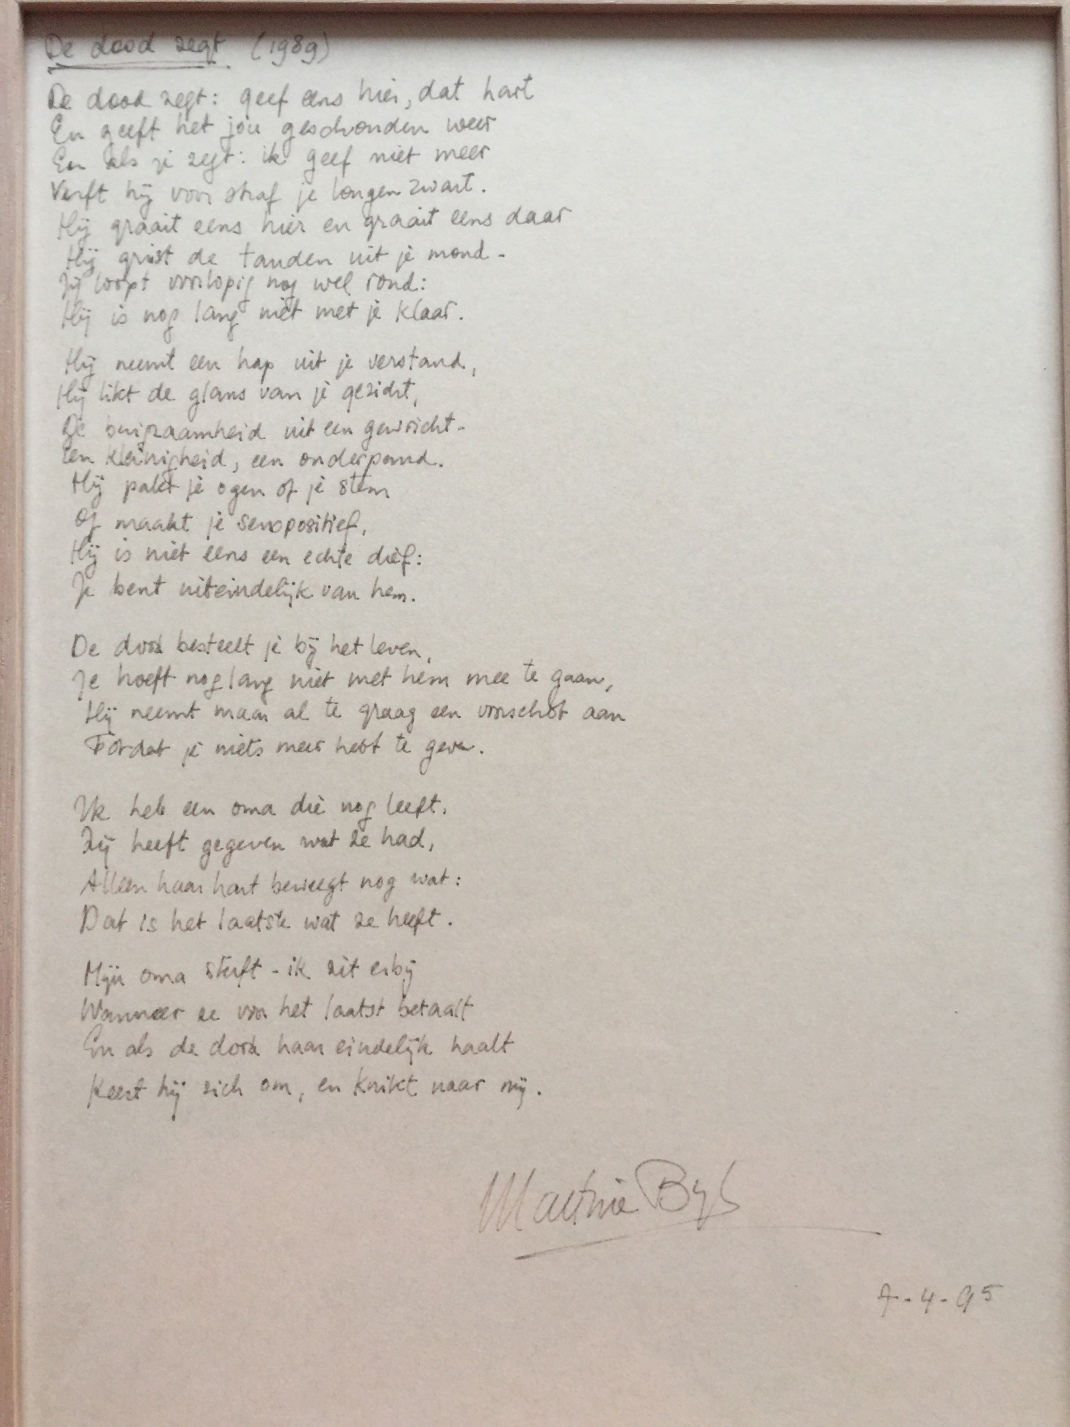 De dood zegt (1989)
De dood zegt: geef eens hier, dat hart
En geeft het jou geschonden weer
En als je zegt: ik geef niet meer
Verft hij voor straf je longen zwart.
Hij graait eens hier en graait eens daar
Hij grist de tanden uit je mond -
Jij loopt voorlopig nog wel rond:
Hij is nog lang niet met je klaar.
Hij neemt een hap uit je verstand,
Hij likt de glans van je gezicht,
De buigzaamheid uit een gewricht -
Een kleinigheid, een onderpand.
Hij pakt je ogen of je stem
Of maakt je seropositief,
Hij is niet eens een echte dief:
Je bent uiteindelijk van hem.
De dood besteelt je bij het leven,
Je hoeft nog lang niet met hem mee te gaan,
Hij neemt maar al te graag een voorschot aan
Totdat je niets meer hebt te geven.
Ik heb een oma die nog leeft.
Zij heeft gegeven wat ze had,
Alleen haar hart beweegt nog wat:
Dat is het laatste wat ze heeft.
Mijn oma sterft - ik zit erbij
Wanneer ze voor het laatst betaalt
En als de dood haar eindelijk haalt
Keert hij zich om, en knikt naar mij.
7-4-95